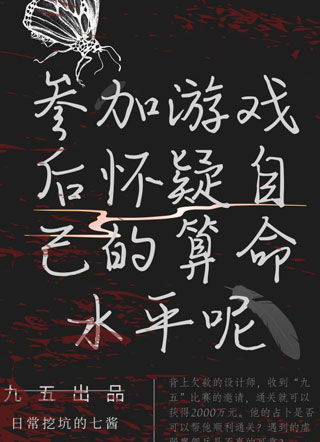 参加游戏
后怀疑自
己的算命
水平呢
九五出品
日常挖坑的七酱
背上欠款的设计师，收到“九
五”比赛的邀请，通关就可以
获得2000万元。他的占卜是否
可以帮他顺利通关？遇到的虚